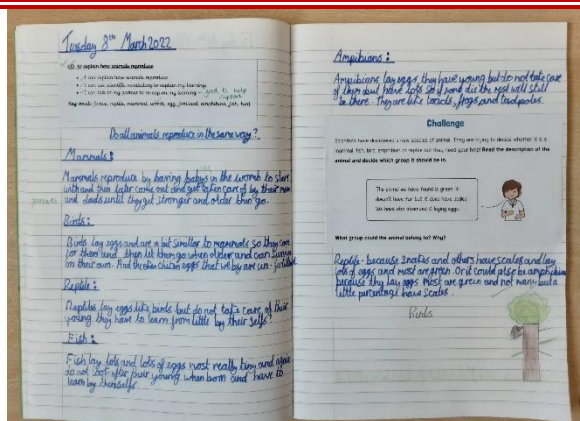 Tuesday 8th March 2022
LO: to explain how animals reproduce
I can explain how animals reproduce
I can use scientific vocabulary to explain my learning
I can talk to my partner to support my learning
Do all animals reproduce in the same way?
Mammals:
Mammals reproduce by having babys in the womb to start
with and then later come out and get taken care of by their mum
and dads until they get stronger and older then go.
Birds:
Birds lay eggs and are a bit similar to mammals so they care
for them and then let them go when older and can survive
on their own. And the chicken eggs that we buy are un-
Reptile:
Reptiles lay eggs like birds but do not take care of their
young they have to learn from little by their self.
Fish:
Fish lay lots and lots of eggs most really tiny and
do not look after their young when born and have to
learn by themselfs
Ampibians:
Ampibians lay eggs, they have young but do not take care
of them but have lots so if some die the rest will still
be there. They are like toads, frogs and tadpoles.
Challenge
Scientists have discovered a new species of animal. They are trying to decide whether it is a
mammal, fish, bird, amphibian or reptile but they need your help! Read the description of the
animal and decide which group it should be in.
The animal we have found is green. It
doesn't have fur but it does have scales.
We have also observed it laying eggs.
What group could the animal belong to? Why?
Reptile - because snakes and others have scales and lay
lots of eggs and most are green. Or it could also be amphibian
because they lay eggs most are green and not many but a
little percentage have scales.
Birds